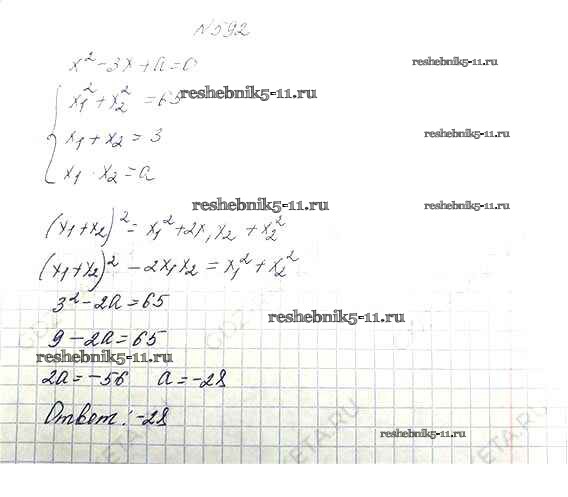 №592
x² - 3x + a = 0
reshebnik5-11.ru
x₁² + x₂² = 65
reshebnik5-11.ru
x₁ + x₂ = 3
reshebnik5-11.ru
x₁ · x₂ = a
reshebnik5-11.ru
reshebnik5-11.ru
(x₁+x₂)² = x₁² + 2x₁x₂ + x₂²
(x₁+x₂)² - 2x₁x₂ = x₁² + x₂²
3² - 2a = 65
reshebnik5-11.ru
9 - 2a = 65
reshebnik5-11.ru
2a = -56 a = -28
Ответ: -28
reshebnik5-11.ru